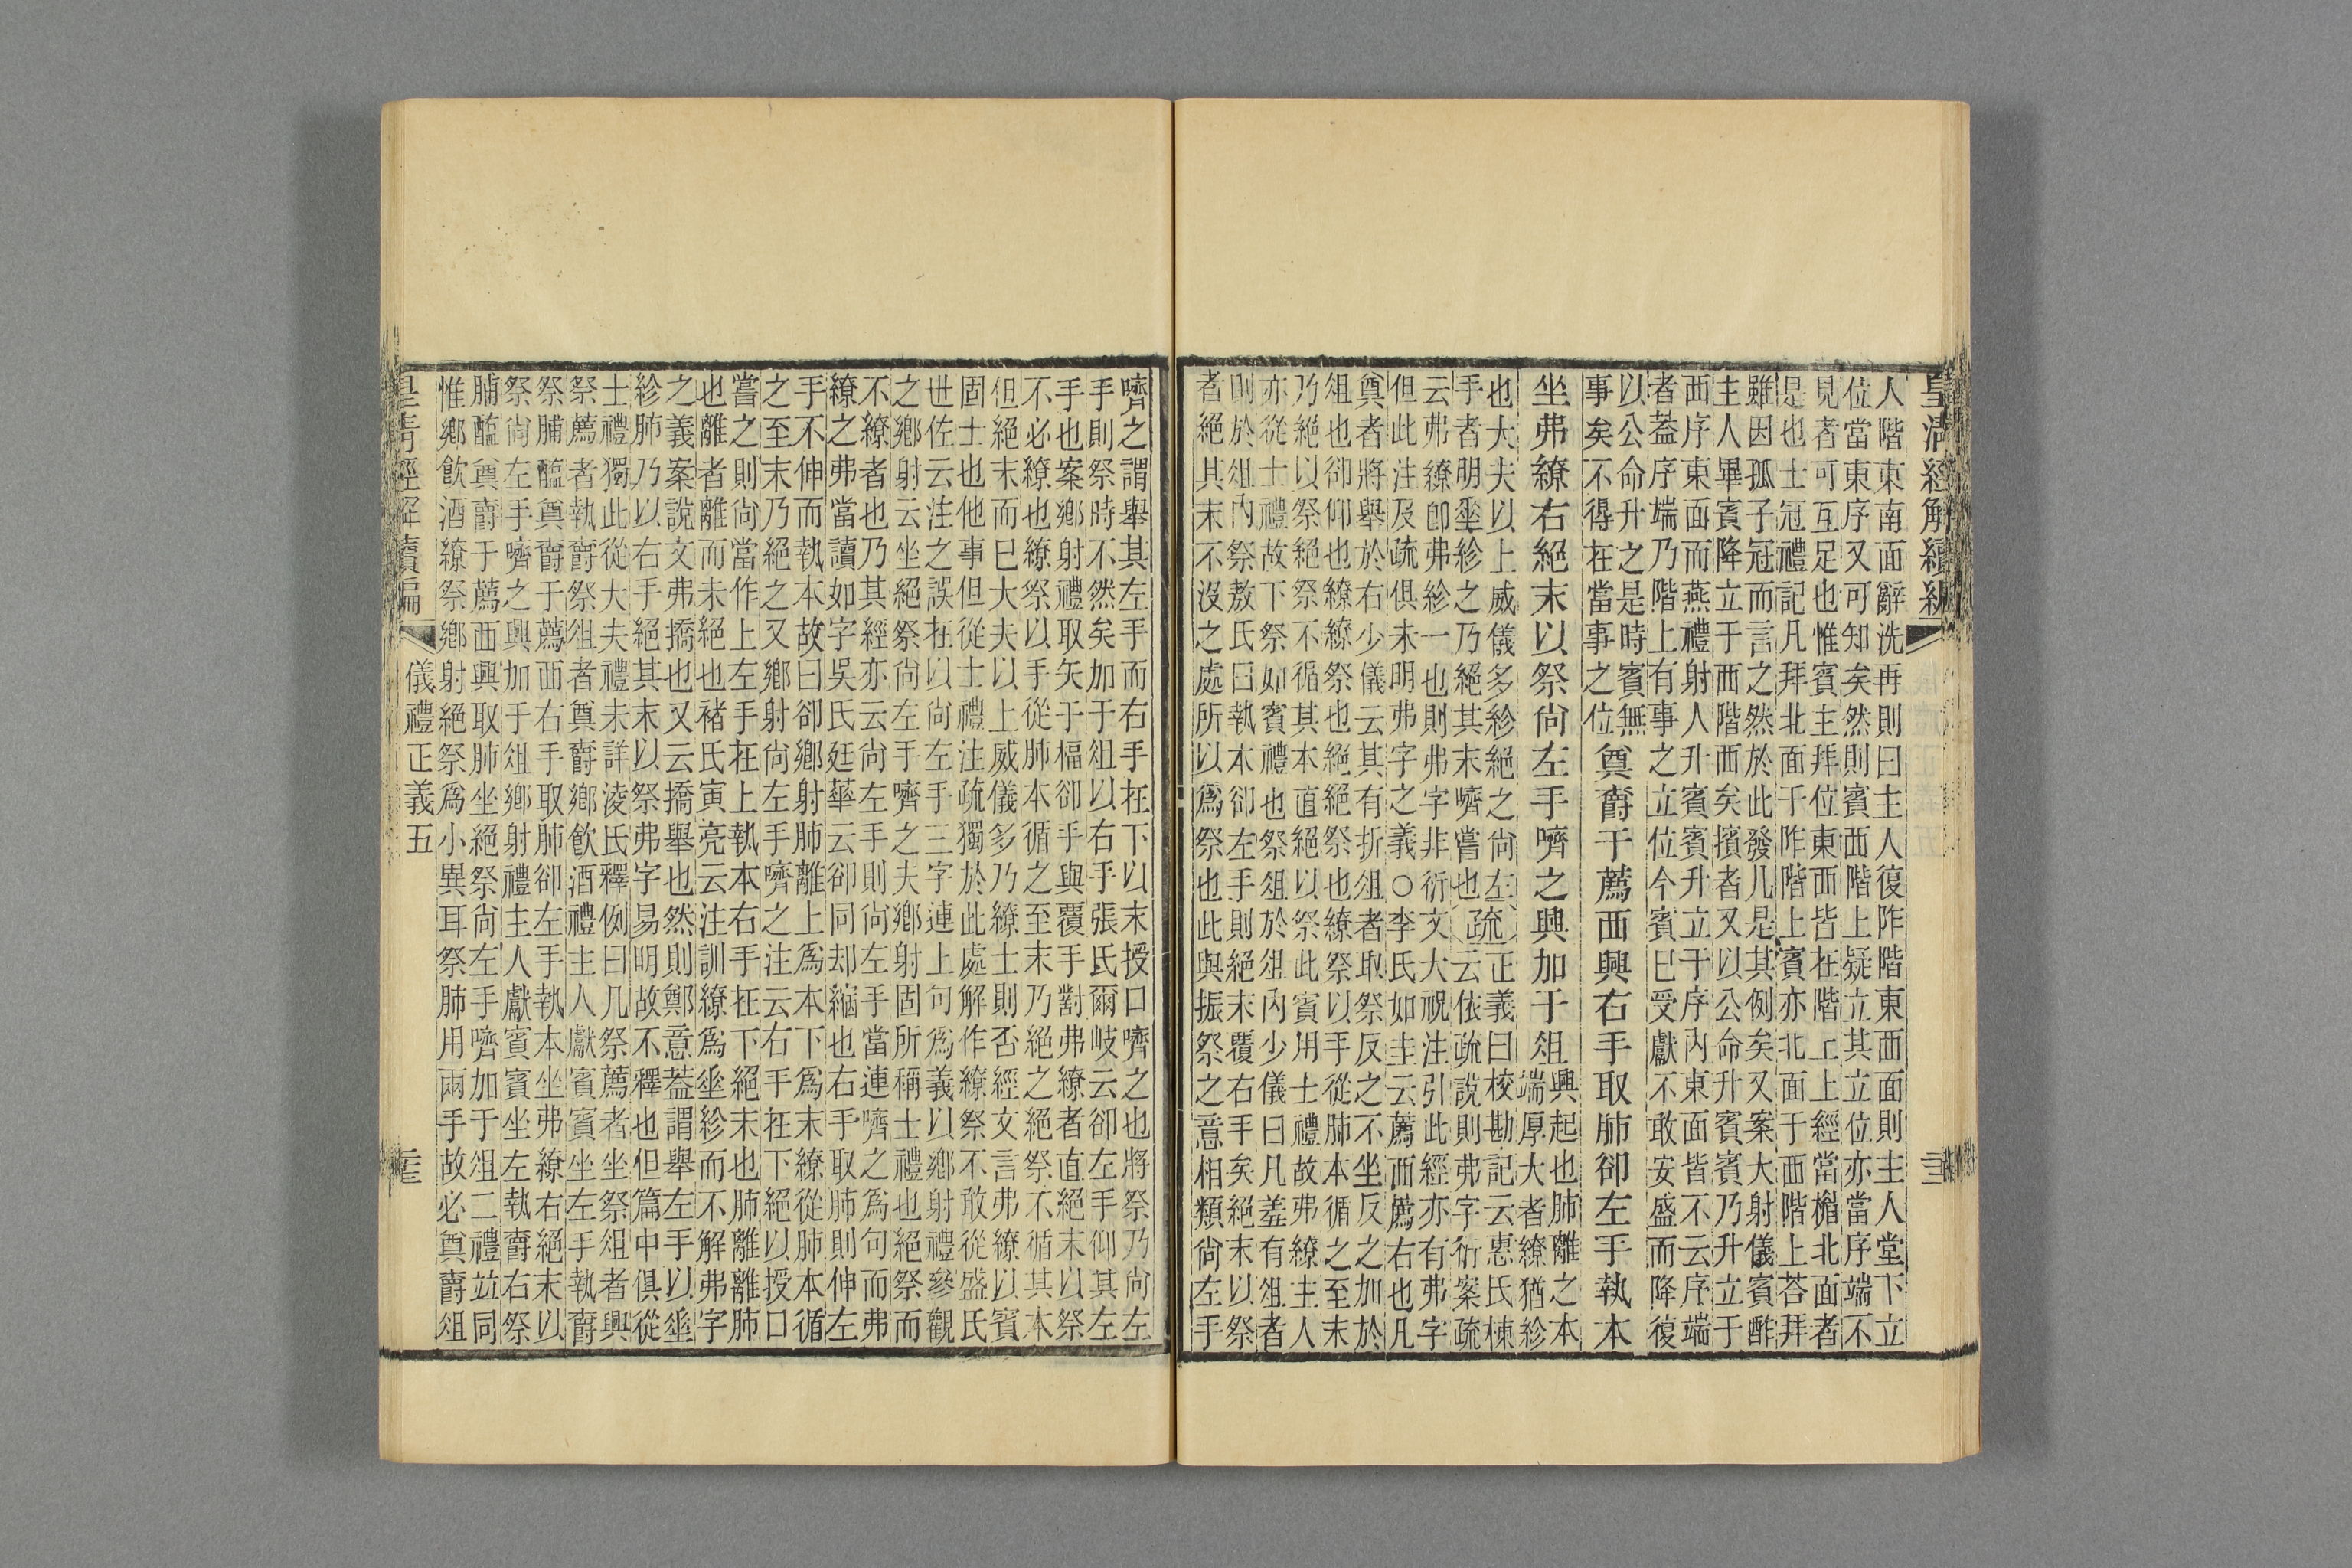 皇清經解續編
人階東南面辭洗再則曰主人復阼階東面面則主人堂下立
位當東序又可知矣然則賓西階上疑立其立位亦當序端不
見者可互足也惟賓主拜位東面皆在階上上經當楣北面者
是也士冠禮記凡拜北面于阼階上賓亦北面于西階上荅拜
雖因孤子冠而言之然於此發凡是其例矣又案大射儀賓酢
主人畢賓降立于西階西矣擯者又以公命升賓賓乃升立于
西序東面而燕禮射人升賓賓升立于序內東面皆不云序端
者葢序端乃階上有事之立位今賓已受獻不敢安盛而降復
以公命升之是時賓無
事矣不得在當事之位
奠爵于薦西興右手取肺卻左手執本
坐弗繚右絕末以祭尙左手嚌之興加于俎
興起也肺離之本
端厚大者繚猶紾
也大夫以上威儀多紾絕之尙左疏正義曰校勘記云惠氏棟
手者明垂紾之乃絕其末嚌嘗也云依疏說則弗字衍案疏
云弗繚卽弗紾一也則弗字非衍文大祝注引此經亦有弗字
但此注及疏俱未明弗字之義○李氏如圭云薦西薦右也凡
奠者將舉於右少儀云其有折俎者取祭反之不坐反之加於
俎也卻仰也繚繚祭也絕絕祭也繚祭以手從肺本循之至末
乃絕以祭絕祭不循其本直絕以祭此賓用士禮故弗繚主人
亦從士禮故下祭如賓禮也祭俎於俎內少儀曰凡羞有俎者
則於俎內祭敖氏曰執本卻左手則絕末覆右手矣絕末以祭
者絕其末不沒之處所以爲祭也此與振祭之意相類尙左手
嚌之謂舉其左手而右手在下以末授口嚌之也將祭乃尙左
手則祭時不然矣加于俎以右手張氏爾岐云卻左手仰其左
手也案鄉射禮取矢于楅卻手與覆手對弗繚者直絕末以祭
不必繚也繚祭以手從肺本循之至末乃絕之絕祭不循其本
但絕末而已大夫以上威儀多乃繚士則否經文言弗繚以賓
固士也他事但從士禮注疏獨於此處解作繚祭不敢從盛氏
世佐云注之誤在以尙左手三字連上句爲義以鄉射禮參觀
之鄉射云坐絕祭尙左手嚌之夫鄉射固所稱士禮也絕祭而
不繚者也乃其經亦云尙左手則尙左手當連嚌之爲句而弗
繚之弗當讀如字吳氏廷華云卻同却縮也右手取肺則伸左
手不伸而執本故曰卻鄉射肺離上爲本下爲末繚從肺本循
之至末乃絕之又鄉射尙左手嚌之注云右手在下絕以授口
嘗之則尙當作上左手在上執本右手在下絕末也肺離離肺
也離者離而未絕也褚氏寅亮云注訓繚爲垂紾而不解弗字
之義案說文弗撟也又云撟舉也然則鄭意葢謂舉左手以垂
紾肺乃以右手絕其末以祭弗字易明故不釋也但篇中俱從
士禮獨此從大夫禮未詳淩氏釋例曰凡祭薦者坐祭俎者興
祭薦者執爵祭俎者奠爵鄉飮酒禮主人獻賓賓坐左手執爵
祭脯醢奠爵于薦西右手取肺卻左手執本坐弗繚右絕末以
祭尙左手嚌之興加于俎鄉射禮主人獻賓賓坐左執爵右祭
脯醢奠爵于薦西興取肺坐絕祭尙左手嚌加于俎二禮竝同
惟鄉飮酒繚祭鄉射絕祭爲小異耳祭肺用兩手故必奠爵俎
皇清經解續編
儀禮正義五